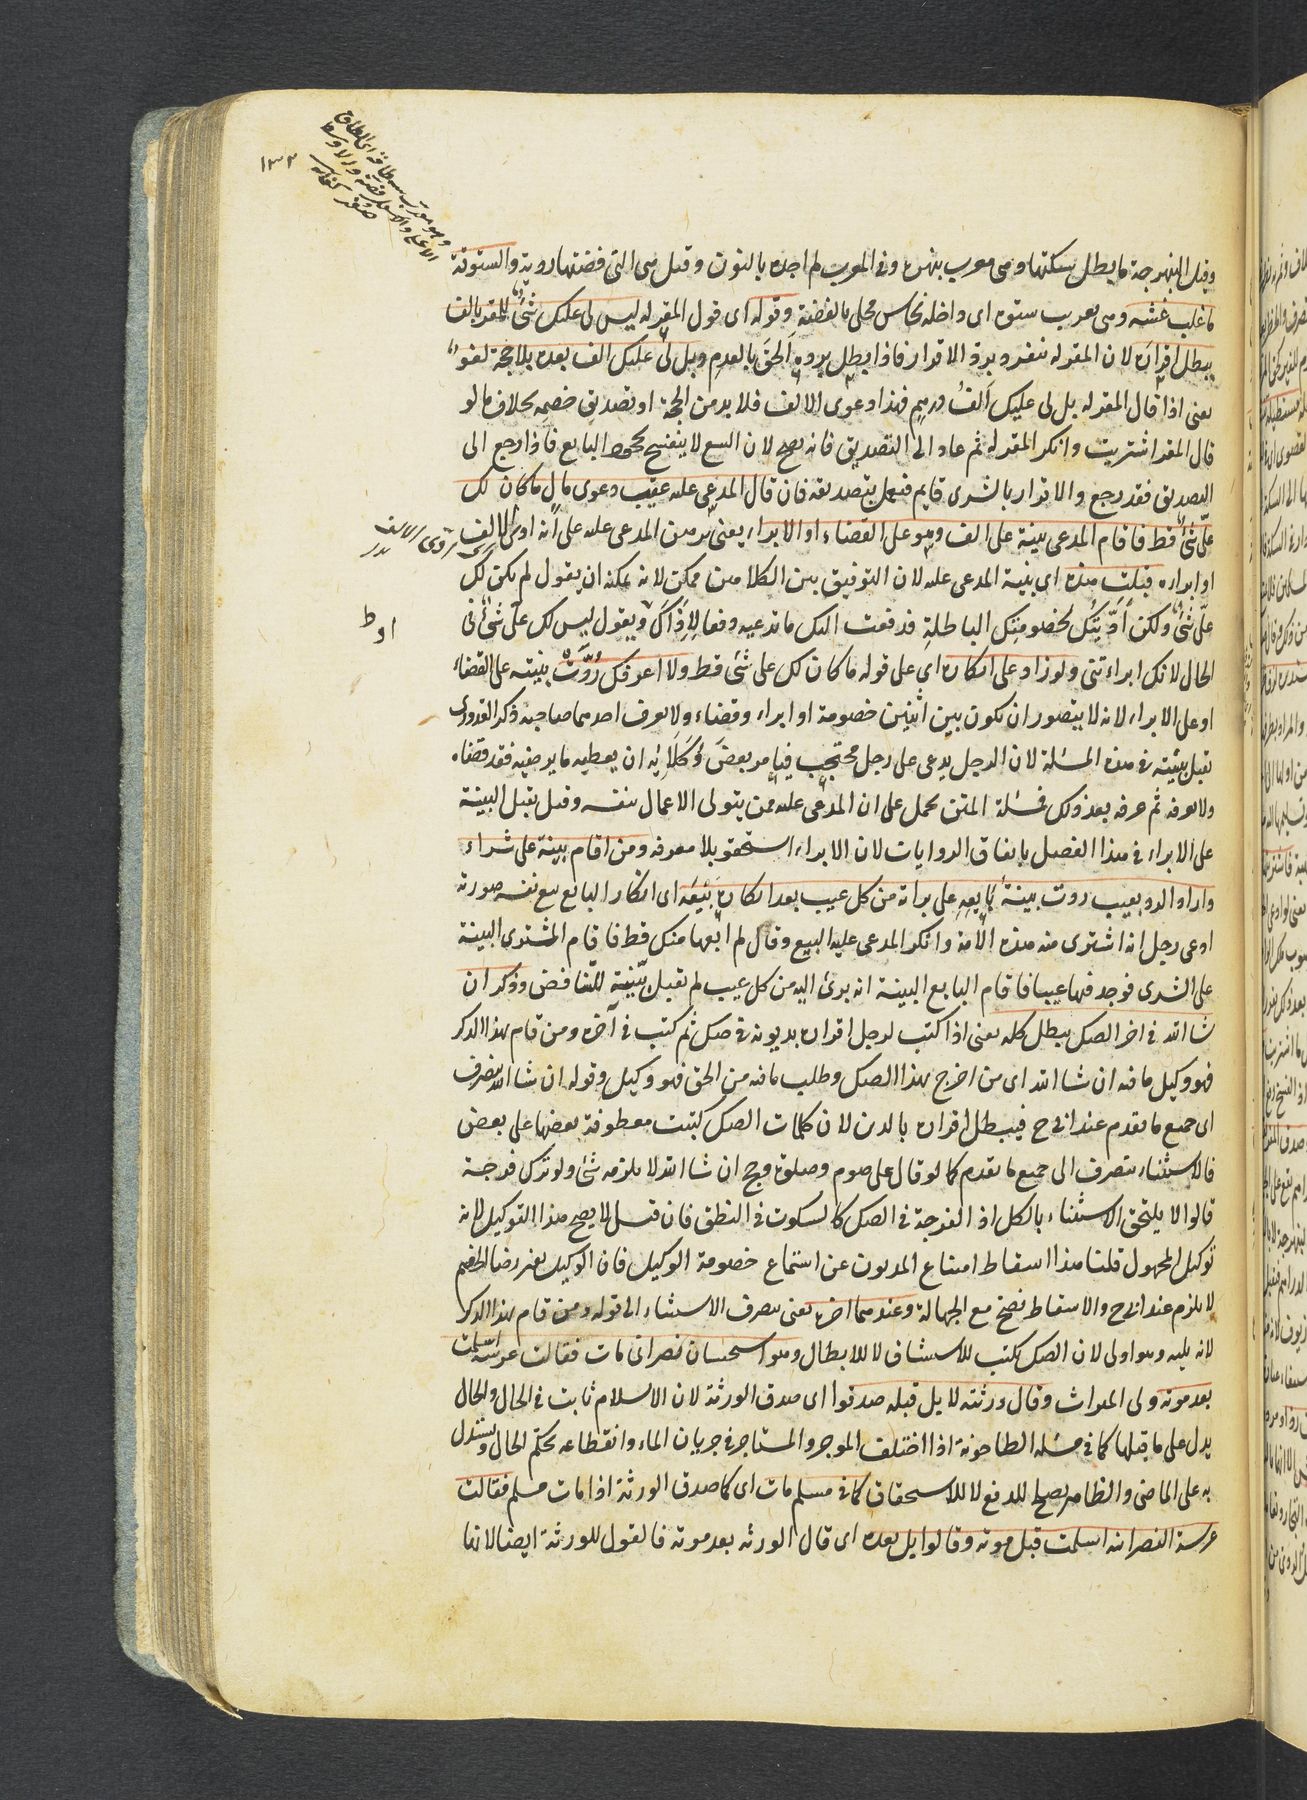 وهو معرب سه طاقة اى الطاق
الاعلى والاسفل فضة والاوسط
صفر كفايه
١٣٢
وقيل النبهرجة ما يطل سكتها وهى معرب بنهره وفى المغرب لم اجده بالنون وقيل هى التى فضتها ردية والستوقة
ما غلب غشه وهى معرب ستوه اى داخله نحاس محلى بالفضة وقوله اى قول المقر له ليس لى عليك شئ للمقر بالف
يبطل اقراره لان المقر له ينفرد برد الاقرار فاذا بطل برده الحق بالعدم وبل لى عليك الف بعده بلا حجة لغو
يعنى اذا قال المقر له بل لى عليك الف درهم فهذا دعوى الالف فلا بد من الحجة او تصديق خصمه بخلاف ما لو
قال المقر اشتريت وانكر المقر له ثم عاد الى التصديق فانه يصح لان البيع لا ينفسخ بجحود البايع فاذا رجع الى
التصديق فقد رجع والاقرار بالشرى قايم فيعمل بتصديقه فان قال المدعى عليه عقيب دعوى مال ما كان لك
على شئ قط فاقام المدعى بينة على الف وهو على القضاء او الابراء يعنى برهن المدعى عليه على انه ادى الالف
او ابراه قبلت هذه اى بينة المدعى عليه لان التوفيق بين الكلامين ممكن لانه يمكنه ان يقول لم يكن لك
على شئ ولكن لخصومتك الباطلة فدفعت اليك ما تدعيه دفعا ويقول ليس لك على شئ فى
الحال لانك ابراءتنى ولو زاد على انكاره اى على قوله ما كان لك على شئ قط ولا اعرفك ردت بينته على القضاء
او على الابراء لانه لا يتصور ان يكون بين اثنين خصومة او ابراء وقضاء ولا يعرف احدهما صاحبه ذكر القدورى
تقبل بينته فى هذه المسئلة لان الرجل يدعى على رجل محتجب فيامر بعض وكلائه ان يعطيه ما يرضيه فقد قضاه
ولا يعرفه ثم عرفه بعد ذلك فمسئلة المتن يحمل على ان المدعى عليه ممن يتولى الاعمال بنفسه وقيل يقبل البينة
على الابراء فى هذا الفصل باتفاق الروايات لان الابراء يتحقق بلا معرفه ومن اقام بينة على شراء
واراد الرد بعيب ردت بينة بايعه على براته من كل عيب بعد انكاره بيعه اى انكار البايع بيع نفسه صورته
ادعى رجل انه اشترى منه هذه الامة وانكر المدعى عليه البيع وقال لم ابعها منك قط فاقام المشترى البينة
على الشرى فوجد فيها عيبا فاقام البايع البينة انه برئ اليه من كل عيب لم تقبل بينته للتناقض وذكر ان
شا الله فى اخر الصك يبطل كله يعنى اذا كتب لرجل اقراره بديونه فى صك ثم كتب فى آخره ومن قام بهذا الذكر
فهو وكيل ما فيه ان شا الله اى من اخرج بهذا الصك وطلب ما فيه من الحق فهو وكيل وقوله ان شا الله يصرف
اى جميع ما تقدم عند ابى ح فيبطل اقراره بالدين لان كلمات الصك كتبت معطوفة بعضها على بعض
فالاستثناء يتصرف الى جميع ما تقدم كما لو قال على صوم وصلوة وحج ان شا الله لا يلزمه شئ ولو ترك فرجة
قالوا لا يلتحق الاستثناء بالكل اذ الفرجة فى الصك كالسكوت فى النطق فان قيل لا يصح هذا التوكيل لانه
توكيل المجهول قلنا هذا اسقاط امتناع المديون عن استماع خصومة الوكيل فان الوكيل بغير رضا الخصم
لا يلزم عند ابى ح والاسقاط يصح مع الجهالة وعندهما اخره يعنى يصرف الاستثناء الى قوله ومن قام بهذا الذكر
لانه يليه وهو اولى لان الصك يكتب للاستيثاق لا للابطال وهو استحسان نصرانى مات فقالت عرسه اسلمت
بعد موته ولى الميراث وقال ورثته لا بل قبله صدقوا اى صدق الورثة لان الاسلام ثابت فى الحال والحال
يدل على ما قبلها كما فى مسئلة الطاحونة اذا اختلف الموجر والمستاجر فى جريان الماء وانقطاعه يحكم الحال ويستدل
به على الماضى والظاهر يصلح للدفع لا للاستحقاق كما فى مسلم مات اى كما صدق الورثة اذا مات مسلم فقالت
عرسه النصرانية اسلمت قبل موته وقالوا بل بعده اى قال الورثه بعد موته فالقول للورثة ايضا لانها